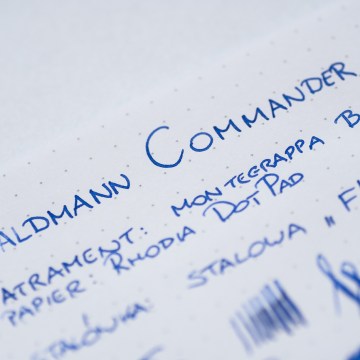 ALDMANN COMMANDER
ATRAMENT: MONTEGRAPPA B
PAPIER: RHODIA DOTPAD
STALÓWKA: STALOWA „F